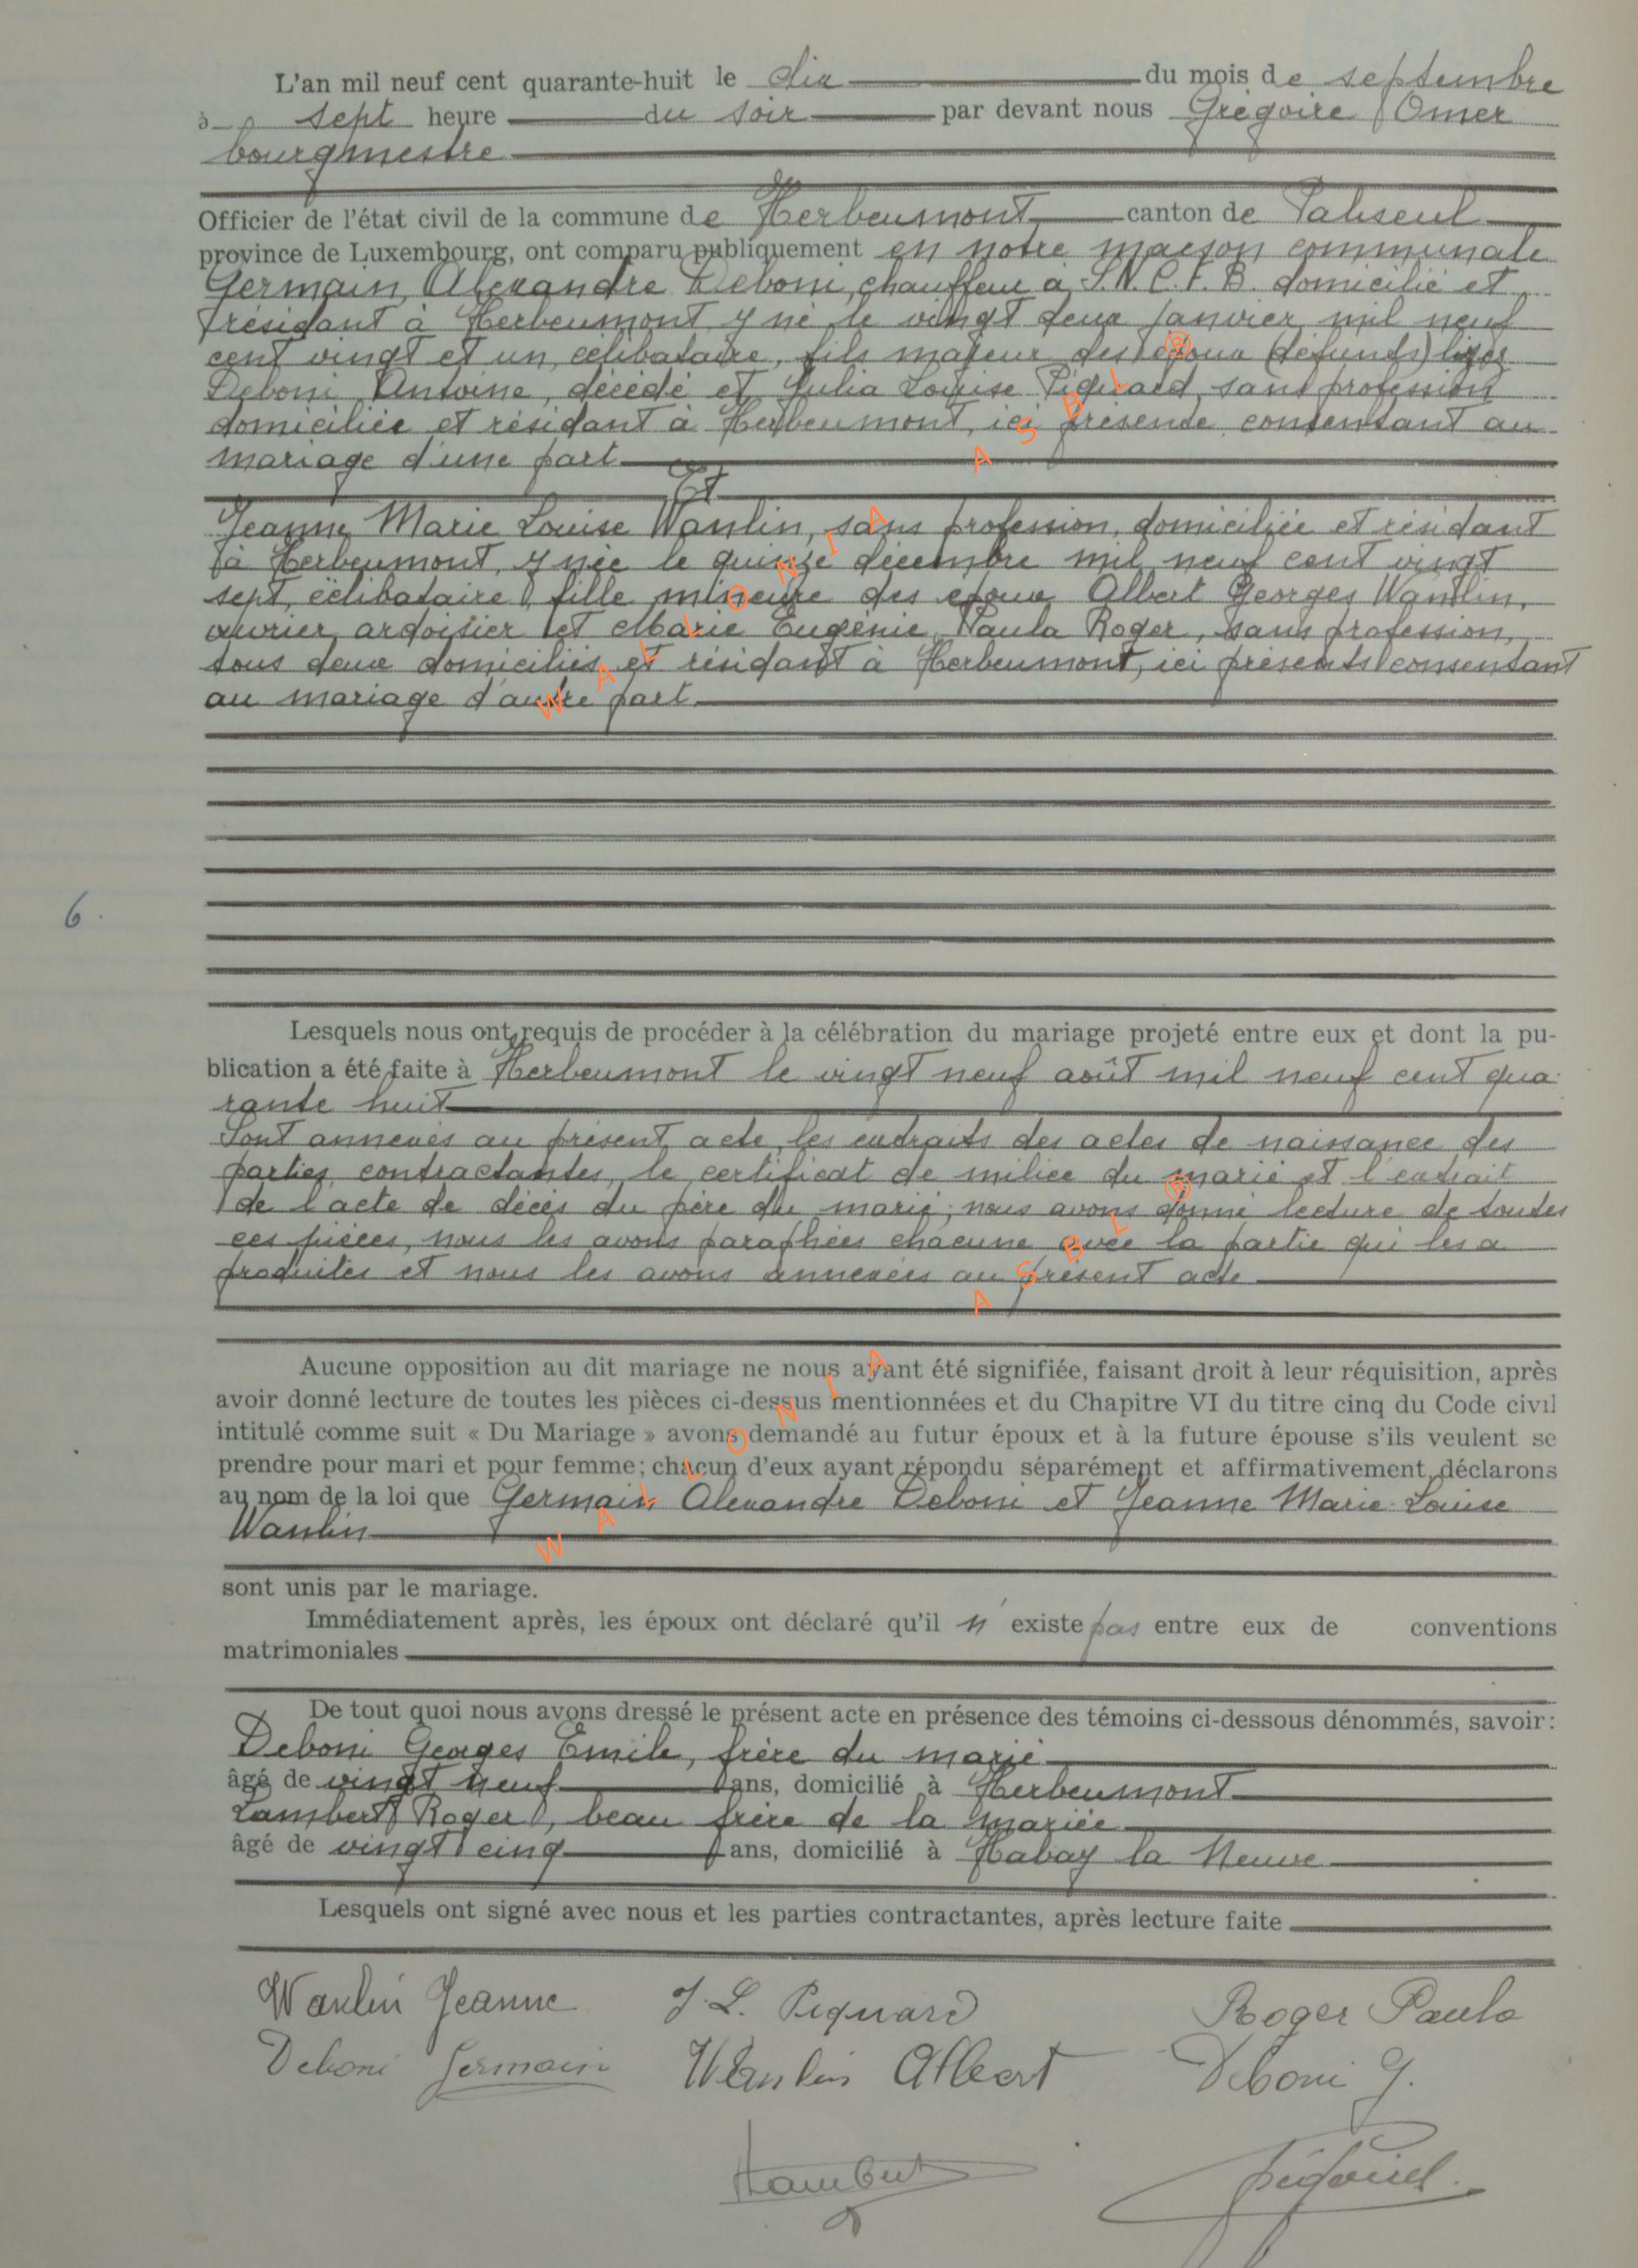 L'an mil neuf cent quarante-huit le dix du mois de septembre
à sept heure du soir par devant nous Grégoire Omer
bourgmestre
Officier de l'état civil de la commune de Herbeumont canton de Paliseul
province de Luxembourg, ont comparu publiquement en notre maison communale
Germain Alexandre Deboni, chauffeur à S.N.C.F.B. domicilié et
résidant à Herbeumont y né le vingt deux janvier mil neuf
cent vingt et un, célibataire, fils majeur des époux (défunts)
Deboni Antoine, décédé et Julia Louise Piquard, sans profession
domiciliée et résidant à Herbeumont, ici présente consentant au
mariage d'une part
Et
Jeanne Marie Louise Wanlin, sans profession, domiciliée et résidant
à Herbeumont, y née le quinze décembre mil neuf cent vingt
sept, célibataire, fille mineure des époux Albert Georges Wanlin,
ouvrier ardoisier et Marie Eugénie Paula Roger, sans profession,
tous deux domiciliés et résidant à Herbeumont, ici présents consentant
au mariage d'autre part
6.
Lesquels nous ont requis de procéder à la célébration du mariage projeté entre eux et dont la pu-
blication a été faite à Herbeumont le vingt neuf août mil neuf cent qua-
rante huit
Sont annexés au présent acte, les extraits des actes de naissance des
parties contractantes, le certificat de milice du marié et l'extrait
de l'acte de décès du père du marié; nous avons donné lecture de toutes
ces pièces, nous les avons paraphées chacune avec la partie qui les a
produites et nous les avons annexées au présent acte
Aucune opposition au dit mariage ne nous ayant été signifiée, faisant droit à leur réquisition, après
avoir donné lecture de toutes les pièces ci-dessus mentionnées et du Chapitre VI du titre cinq du Code civil
intitulé comme suit « Du Mariage » avons demandé au futur époux et à la future épouse s'ils veulent se
prendre pour mari et pour femme; chacun d'eux ayant répondu séparément et affirmativement, déclarons
au nom de la loi que Germain Alexandre Deboni et Jeanne Marie Louise
Wanlin
sont unis par le mariage.
Immédiatement après, les époux ont déclaré qu'il n'existe pas entre eux de conventions
matrimoniales
De tout quoi nous avons dressé le présent acte en présence des témoins ci-dessous dénommés, savoir:
Deboni Georges Emile, frère du marié
âgé de vingt neuf ans, domicilié à Herbeumont
Lambert Roger, beau frère de la mariée
âgé de vingt cinq ans, domicilié à Habay la Neuve
Lesquels ont signé avec nous et les parties contractantes, après lecture faite
Wanlin Jeanne J. L. Piquard Roger Paula
Deboni Germain Wanlin Albert Deboni G.
Lambert
WALLONIA ASBL ®
WALLONIA ASBL ®